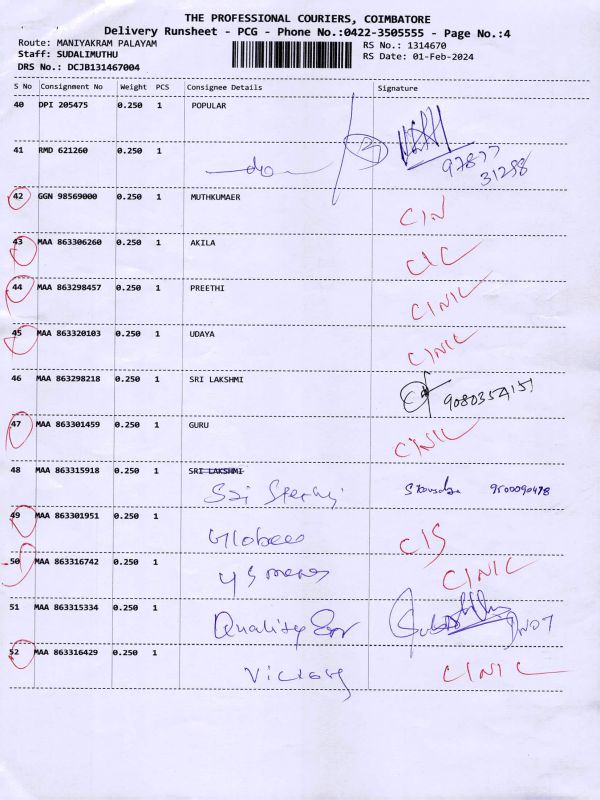 THE PROFESSIONAL COURIERS, COIMBATORE
Delivery Runsheet - PCG - Phone No.:0422-3505555 - Page No.:4
Route: MANIYAKRAM PALAYAM
RS No.: 1314670
Staff: SUDALIMUTHU
RS Date: 01-Feb-2024
DRS No.: DCJB131467004
S No Consignment No Weight PCS Consignee Details Signature
40 DPI 205475 0.250 1 POPULAR
41 RMD 621260 0.250 1
do 97877
31298
42 GGN 98569000 0.250 1 MUTHKUMAER
CIN
43 MAA 863306260 0.250 1 AKILA
CIC
44 MAA 863298457 0.250 1 PREETHI
CINIC
45 MAA 863320103 0.250 1 UDAYA
CINIC
46 MAA 863298218 0.250 1 SRI LAKSHMI
9080354151
47 MAA 863301459 0.250 1 GURU
CINIC
48 MAA 863315918 0.250 1 SRI LAKSHMI
Sri 9500090478
49 MAA 863301951 0.250 1
CIS
50 MAA 863316742 0.250 1
CINIC
51 MAA 863315334 0.250 1
Quality
52 MAA 863316429 0.250 1
Victory CINIC